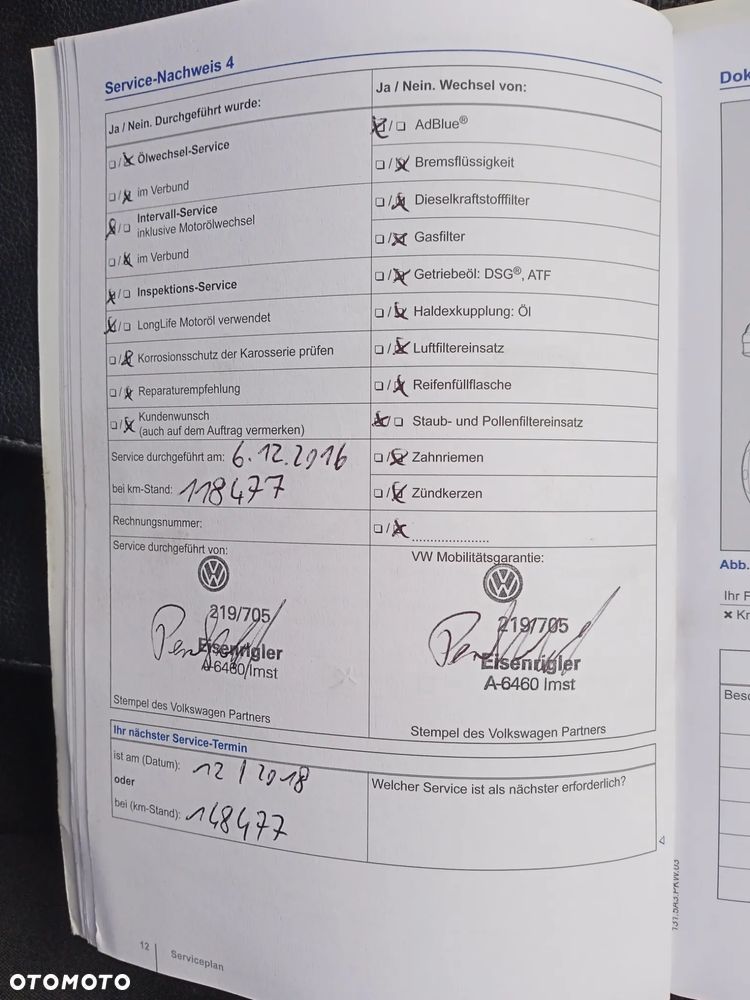 Service-Nachweis 4
Ja / Nein. Durchgeführt wurde:
❏/❏ Ölwechsel-Service
❏/❏ im Verbund
❏/❏ Intervall-Service
inklusive Motorölwechsel
❏/❏ im Verbund
❏/❏ Inspektions-Service
❏/❏ LongLife Motoröl verwendet
❏/❏ Korrosionsschutz der Karosserie prüfen
❏/❏ Reparaturempfehlung
❏/❏ Kundenwunsch
(auch auf dem Auftrag vermerken)
Service durchgeführt am: 6.12.2016
bei km-Stand: 118477
Rechnungsnummer:
Service durchgeführt von:
219/705
Eisenrigler
A-6460 Imst
Stempel des Volkswagen Partners
Ja / Nein. Wechsel von:
❏/❏ AdBlue®
❏/❏ Bremsflüssigkeit
❏/❏ Dieselkraftstofffilter
❏/❏ Gasfilter
❏/❏ Getriebeöl: DSG®, ATF
❏/❏ Haldexkupplung: Öl
❏/❏ Luftfiltereinsatz
❏/❏ Reifenfüllflasche
❏/❏ Staub- und Pollenfiltereinsatz
❏/❏ Zahnriemen
❏/❏ Zündkerzen
❏/❏ .....................
VW Mobilitätsgarantie:
219/705
Eisenrigler
A-6460 Imst
Stempel des Volkswagen Partners
Ihr nächster Service-Termin
ist am (Datum): 12/2018
oder
bei (km-Stand): 148477
Welcher Service ist als nächster erforderlich?
12
Serviceplan
Dok
Abb.
Ihr F
Kr
Besc
OTOMOTO